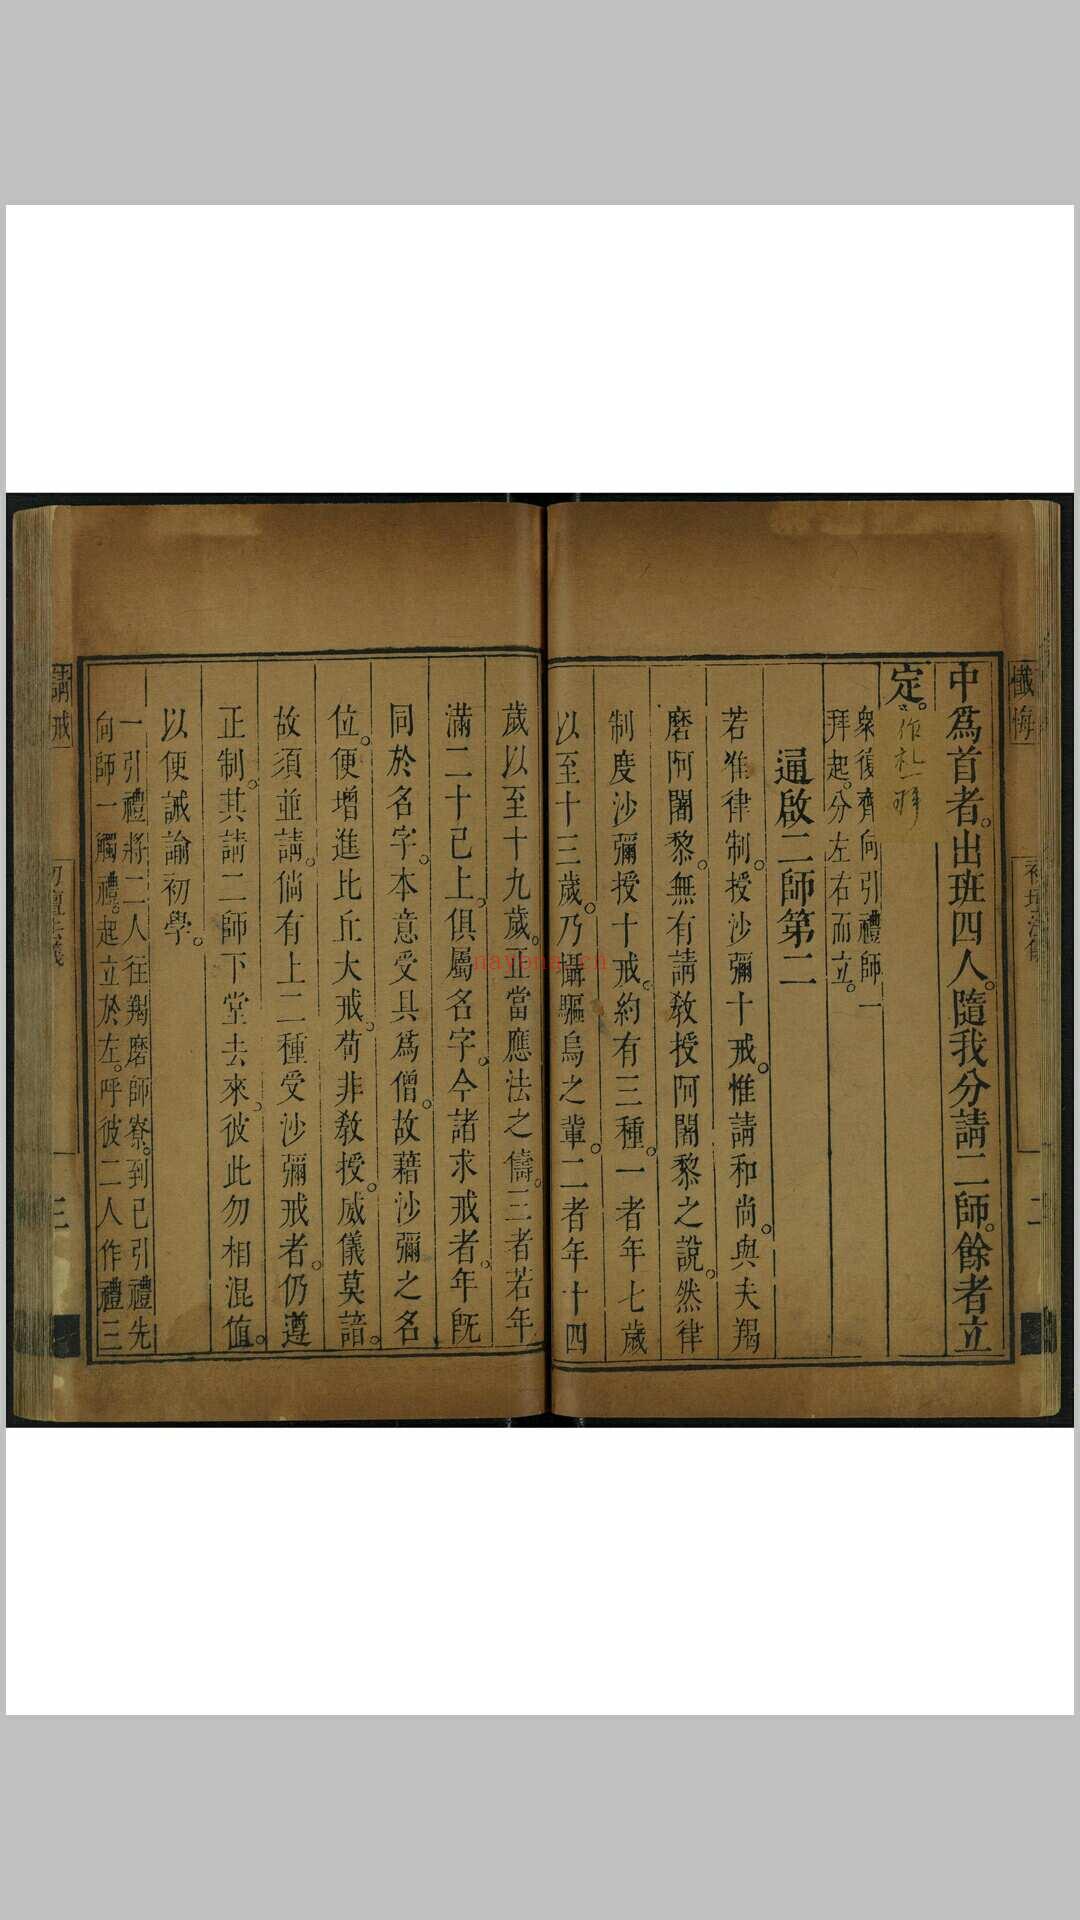 懺悔
二
中爲首者。出班四人。隨我分請二師。餘者立
定。
作札一拜
衆復齊向引禮師一
拜起。分左右而立。
通啟二師第二
若准律制。授沙彌十戒。惟請和尚。與夫羯
磨阿闍黎。無有請教授阿闍黎之說。然律
制度沙彌授十戒。約有三種。一者年七歲
以至十三歲。乃攝驅烏之輩。二者年十四
歲以至十九歲。正當應法之儔。三者若年
滿二十已上。俱屬名字。今諸求戒者。年旣
同於名字。本意受具爲僧。故藉沙彌之名
位。便增進比丘大戒。苟非教授。威儀莫諳。
故須並請。倘有上二種受沙彌戒者。仍遵
正制。其請二師下堂去來。彼此勿相混値。
以便誡諭初學。
一引禮將二人往羯磨師寮。到已引禮先
向師一觸禮。起立於左。呼彼二人作禮三
請戒
初壇法儀
三
nayona.cn